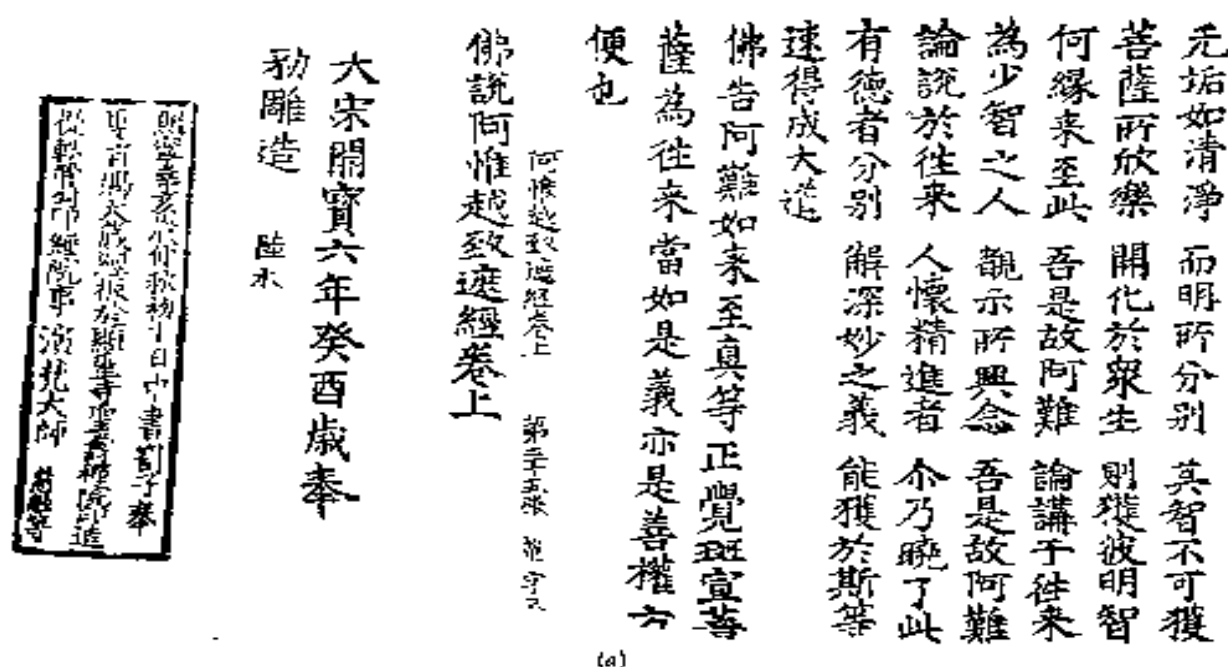 无垢如清淨 而明所分别 其智不可獲
菩薩所欣樂 開化於衆生 則獲彼明智
何緣来至此 吾是故阿難 論講于往来
為少智之人 觀示所興念 吾是故阿難
論說於往来 人懷精進者 尒乃曉了此
有德者分别 解深妙之義 能獲於斯等
速得成大道
佛告阿難如来至真等正覺班宣等
薩為往来當如是義亦是善權方
便也
阿惟越致遮經卷上 第二十五張 草字号
佛說阿惟越致遮經卷上
大宋開寶六年癸酉歲奉
勑雕造 陸永
熈寧辛亥歲仲秋初十日中書劄子奉
聖旨賜大藏經板於顯聖寺聖壽禪院印造
提轄管勾印經院事演梵大師 慈敏等
(a)